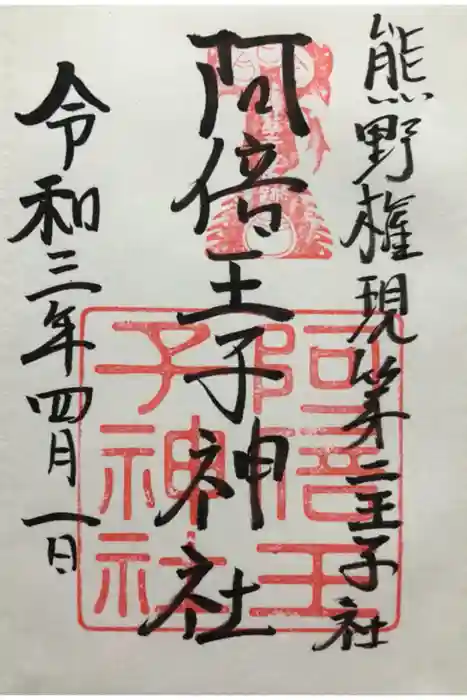 熊野権現第二王子社
阿倍王子神社
令和三年四月一日
阿倍王
子神社